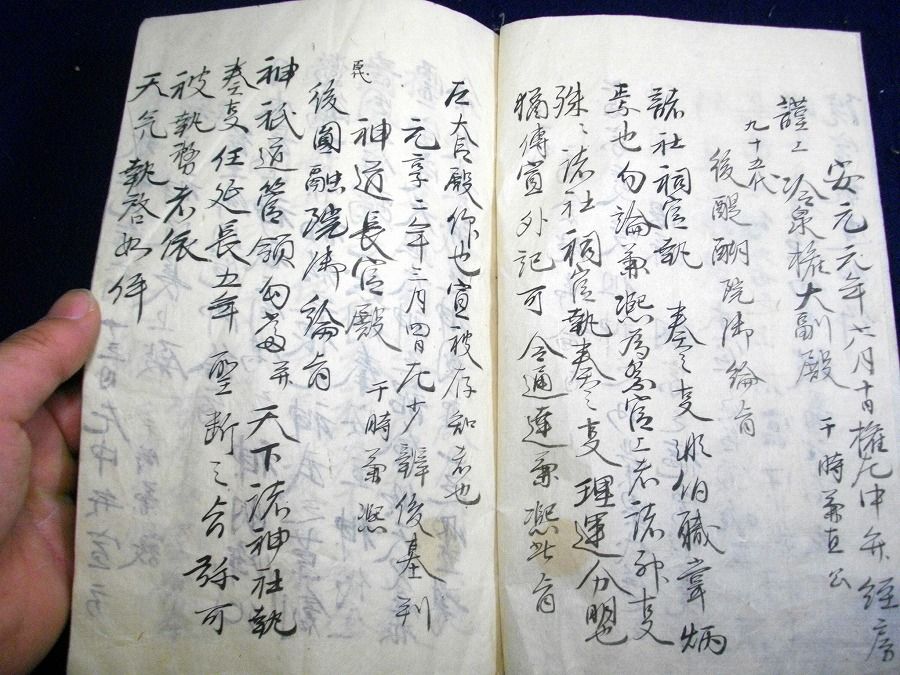 安元元年六月十日権左中弁経房
謹上　冷泉権大副殿　于時兼直公
九十五代
後醍醐院御綸旨
諸社祠官執　奏之事非伯職掌炳
焉也勿論兼凞為祭官上者諸祠事
殊之諸社祠官執奏之事理運分明也
猶傳宣外記可令通達兼凞者旨
左大臣殿仰也宣被存知者也
元享二年三月四日左少辨後基判
神道長官殿　于時兼凞
後圓融院御綸旨
神祇道管領勾當并天下諸神社執
奏事任延長五年　聖断之旨弥可
被執務者依
天気執啓如件